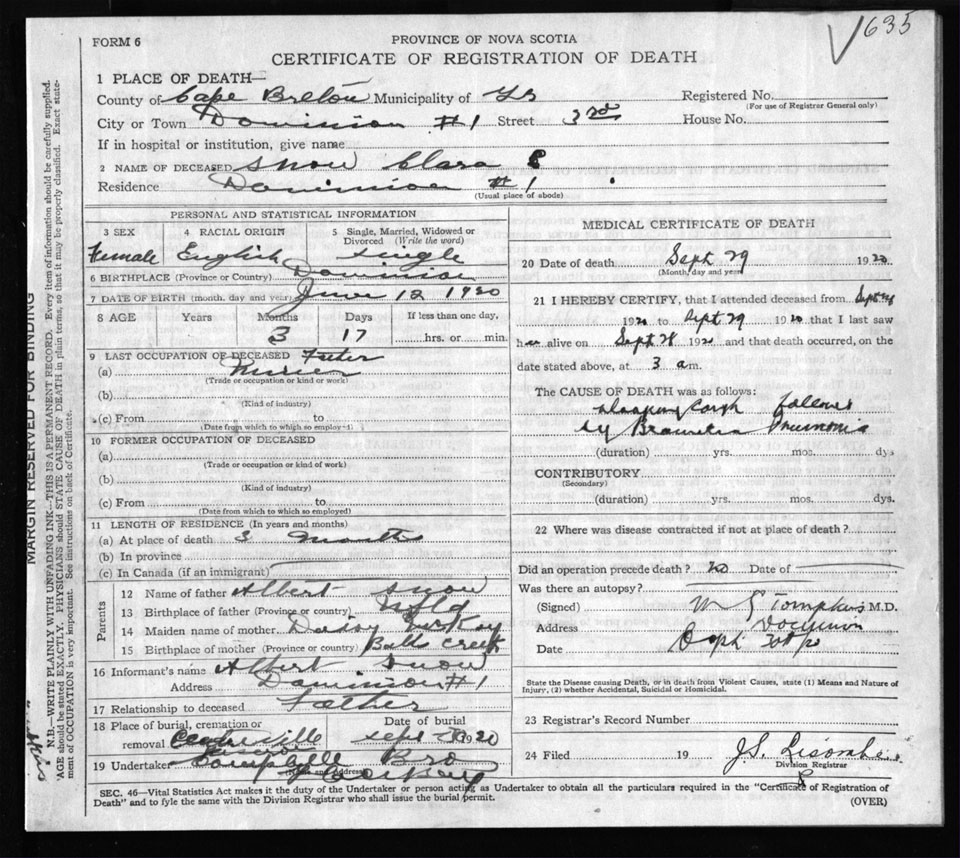 635
FORM 6
PROVINCE OF NOVA SCOTIA
CERTIFICATE OF REGISTRATION OF DEATH
1 PLACE OF DEATH—
County of Cape Breton Municipality of Registered No.
(For use of Registrar General only)
City or Town Dominion #1 Street 3rd House No.
If in hospital or institution, give name
2 NAME OF DECEASED Snow Clara
Residence Dominion #1
(Usual place of abode)
PERSONAL AND STATISTICAL INFORMATION
3 SEX 4 RACIAL ORIGIN 5 Single, Married, Widowed or
Divorced (Write the word)
Female English single
6 BIRTHPLACE (Province or Country) Dominion
7 DATE OF BIRTH (month, day and year) June 12 1920
8 AGE Years Months Days If less than one day,
3 17 hrs. or min.
9 LAST OCCUPATION OF DECEASED Father
(a) Miner
(Trade or occupation or kind or work)
(b)
(Kind of industry)
(c) From to
(Date from which to which so employed)
10 FORMER OCCUPATION OF DECEASED
(a)
(Trade or occupation or kind of work)
(b)
(Kind of industry)
(c) From to
(Date from which to which so employed)
11 LENGTH OF RESIDENCE (In years and months)
(a) At place of death 3 months
(b) In province
(c) In Canada (if an immigrant)
Parents
12 Name of father Albert Snow
13 Birthplace of father (Province or country) Nfld
14 Maiden name of mother Daisy
15 Birthplace of mother (Province or country) Creek
16 Informant's name Albert Snow
Address Dominion #1
17 Relationship to deceased Father
18 Place of burial, cremation or Date of burial
removal Centreville Sept 1920
19 Undertaker Bro
(Name and Address)
MEDICAL CERTIFICATE OF DEATH
20 Date of death Sept 29 1920
(Month, day and year)
21 I HEREBY CERTIFY, that I attended deceased from Sept
1920 to Sept 29 1920 that I last saw
h alive on Sept 28 1920 and that death occurred, on the
date stated above, at 3 a m.
The CAUSE OF DEATH was as follows:
cough followed
by Pneumonia
(duration) yrs. mos. dys
CONTRIBUTORY
(Secondary)
(duration) yrs. mos. dys.
22 Where was disease contracted if not at place of death?
Did an operation precede death? no Date of
Was there an autopsy?
(Signed) Tompkins M.D.
Address Dominion
Date
State the Disease causing Death, or in death from Violent Causes, state (1) Means and Nature of
Injury, (2) whether Accidental, Suicidal or Homicidal.
23 Registrar's Record Number
24 Filed 19
Division Registrar
SEC. 46—Vital Statistics Act makes it the duty of the Undertaker or person acting as Undertaker to obtain all the particulars required in the "Certificate of Registration of
Death" and to fyle the same with the Division Registrar who shall issue the burial permit.
(OVER)
MARGIN RESERVED FOR BINDING
N.B.—WRITE PLAINLY WITH UNFADING INK—THIS IS A PERMANENT RECORD. Every item of information should be carefully supplied.
AGE should be stated EXACTLY. PHYSICIANS should STATE CAUSE OF DEATH in plain terms, so that it may be properly classified. Exact state-
ment of OCCUPATION is very important. See instructions on back of Certificate.